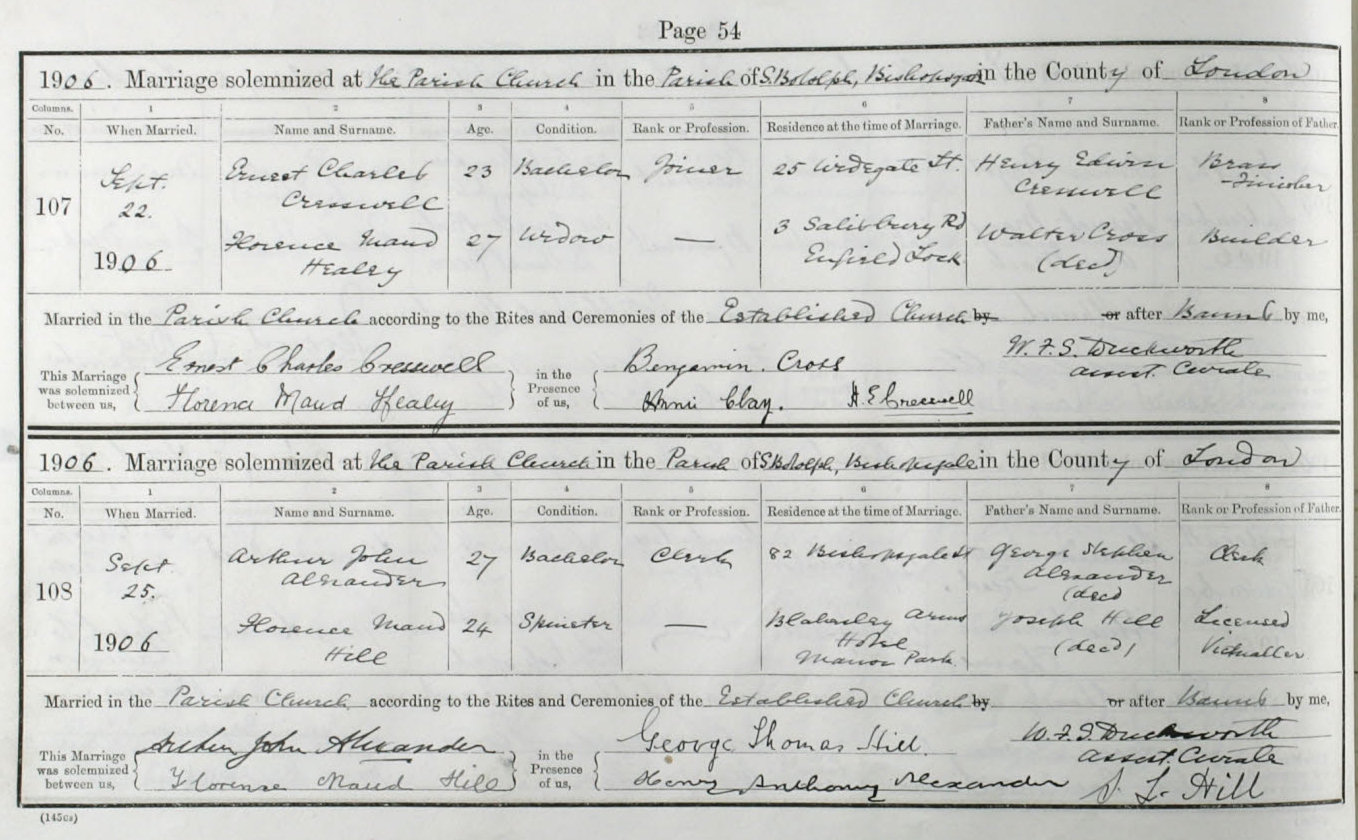 Page 54
1906. Marriage solemnized at the Parish Church in the Parish of S. Botolph, Bishopsgate in the County of London
Columns. 1 2 3 4 5 6 7 8
No. When Married. Name and Surname. Age. Condition. Rank or Profession. Residence at the time of Marriage. Father's Name and Surname. Rank or Profession of Father.
107 Sept. 22. 1906 Ernest Charles Cresswell 23 Bachelor Joiner 25 St. Henry Edwin Cresswell Brass Finisher
Florence Maud Healey 27 Widow — 3 Salisbury Rd Enfield Lock Walter Cross (decd) Builder
Married in the Parish Church according to the Rites and Ceremonies of the Established Church by or after Banns by me,
This Marriage was solemnized between us, Ernest Charles Cresswell in the Presence of us, Benjamin. Cross W. F. S. Duckworth
Florence Maud Healey Annie Clay. H. E Cresswell Assist. Curate
1906. Marriage solemnized at the Parish Church in the Parish of S Botolph, Bishopsgate in the County of London
Columns. 1 2 3 4 5 6 7 8
No. When Married. Name and Surname. Age. Condition. Rank or Profession. Residence at the time of Marriage. Father's Name and Surname. Rank or Profession of Father.
108 Sept 25. 1906 Arthur John Alexander 27 Bachelor Clerk 82 Bishopsgate St George Stephen Alexander (decd) Clerk
Florence Maud Hill 24 Spinster — Arms Hotel Manor Park. Joseph Hill (decd) Licensed Victualler
Married in the Parish Church according to the Rites and Ceremonies of the Established Church by or after Banns by me,
This Marriage was solemnized between us, Arthur John Alexander in the Presence of us, George Thomas Hill. W. F. S. Duckworth
Florence Maud Hill Henry Anthony Alexander Assist. Curate
S. L. Hill
(145cs)